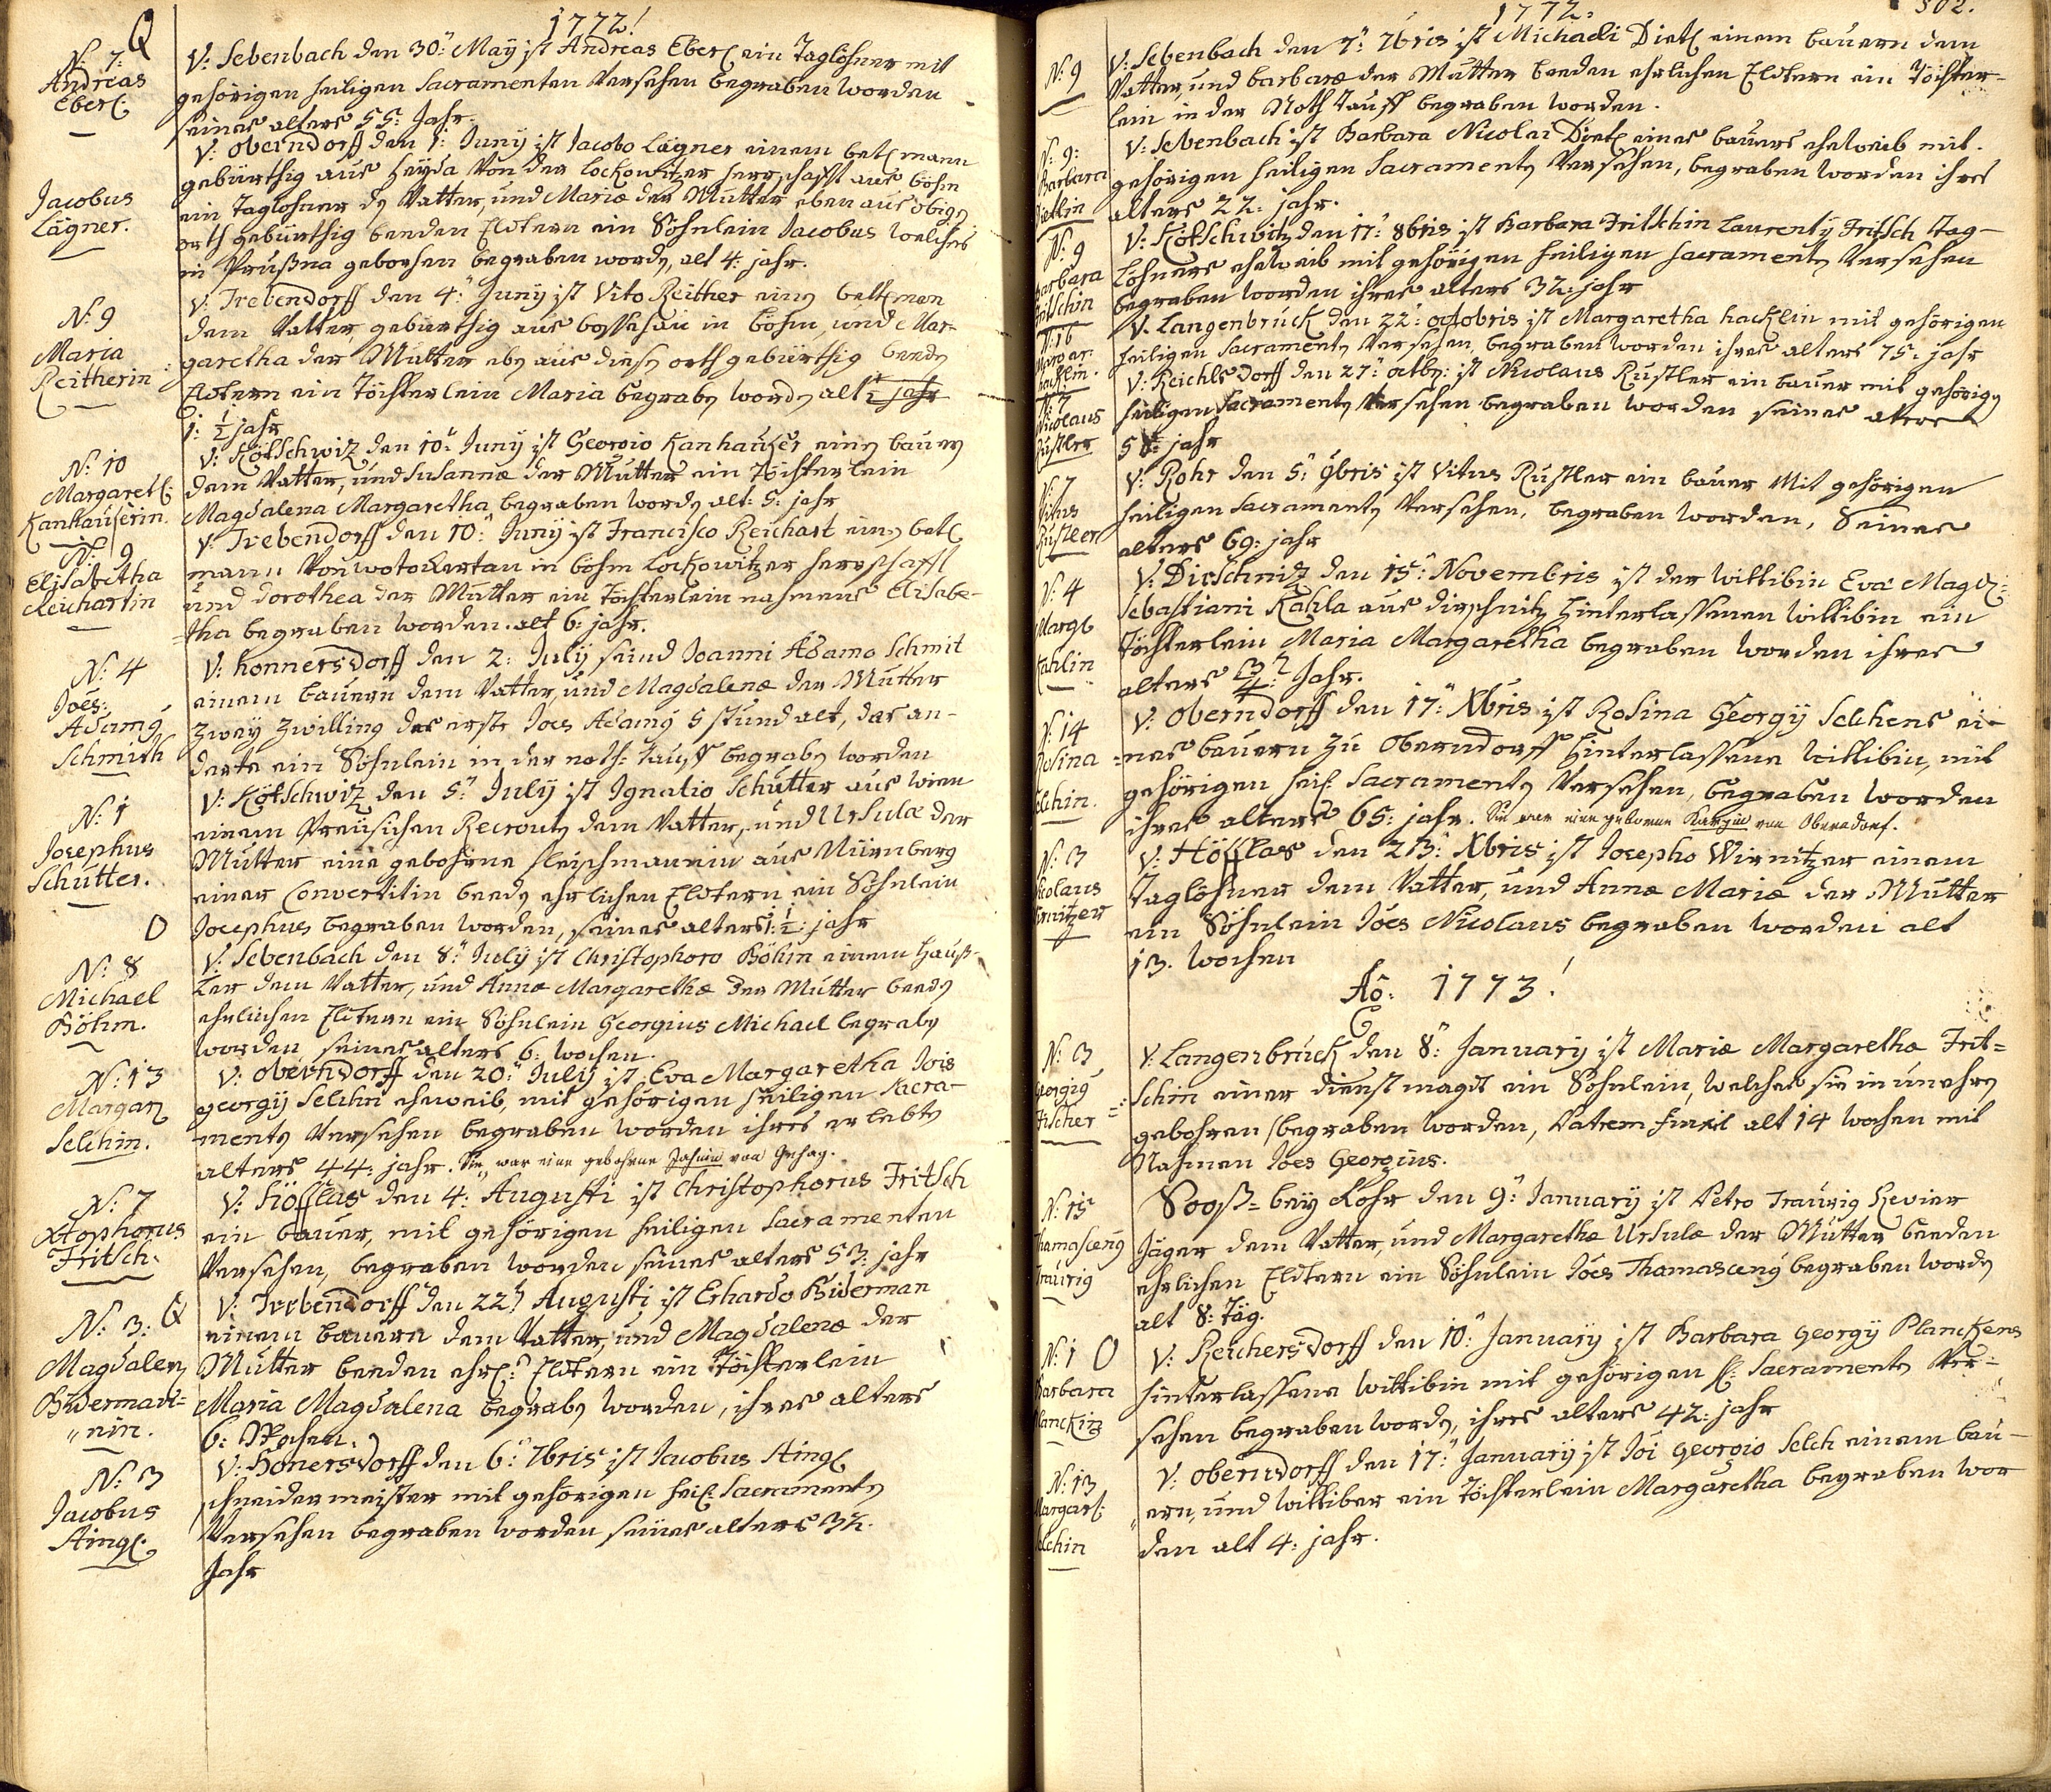 1772!
Q
N: 7:
Andreas
Eberl
V: Sebenbach den 30: May ist Andreas Eberl ein Taglöhner mit
gehörigen heiligen Sacramenten Versehen begraben worden
seines alters 55: Jahr.
Jacobus
Lägner.
V: Oberndorff den 1: Juny ist Jacobo Lägner einem betlmann
gebürthig aus Heyda Von der Lockowitzer herrschafft aus böhm
ein Taglohner dem Vatter, und Mariæ der Mutter eben aus obigen
orth gebürthig beeden Eltern ein Söhnlein Jacobus welches
in gebohren begraben worden, alt 4: jahr.
N: 9
Maria
Reitherin
V: Trebendorff den 4: Juny ist Vito Reither einen betlman
dem Vatter, gebürthig aus in böhm, und Mar-
garetha der Mutter eben aus diesen orth gebürthig beeden
Eltern ein Töchterlein Maria begraben worden alt ½ jahr
1: ½ jahr
N: 10
Margaretl:
Kanhauserin
V: Kötschwitz den 10: Juny ist Georgio Kanhauser einen bauern
dem Vatter, und Susannæ der Mutter ein Töchterlein
Magdalena Margaretha begraben worden alt: 5: jahr
N: 9
Elisabetha
Reichartin
V: Trebendorff den 10: Juny ist Francisco Reichart einen betl
mann Von in böhm Lockowitzer herrschafft
und Dorothea der Mutter ein Töchterlein nahmens Elisabe-
tha begraben worden. alt 6: jahr.
N: 4
Joës:
Adamg
Schmith
V: honnersdorff den 2: July seind Joanni Adamo Schmit
einem bauern dem Vatter, und Magdalenæ der Mutter
zwey zwilling das erste Joes Adamg 5 stund alt, das an-
derte ein Söhnlein in der noth-tauff begraben worden
N: 1
Josephus
Schutter.
V: Kötschwitz den 5: July ist Ignatio Schutter aus wien
einem Preusichen Recrouten dem Vatter, und Ursulæ der
Mutter eine gebohrne fleischmannin aus Nürnberg
einer Convertitin beeden ehrlichen Eltern ein Söhnlein
Josephus begraben worden, seines alters 1: ½: jahr
O
N: 8
Michael
Böhm.
V: Sebenbach den 8: July ist Christophoro Böhm einem hauß-
ler dem Vatter, und Annæ Margarethæ der Mutter beeden
ehrlichen Eltern ein Söhnlein Georgius Michael begraben
worden seines alters 6: wochen.
N: 13
Margar
Selchin.
V: oberndorff den 20: July ist Eva Margaretha Jois
georgij Selchn eheweib, mit gehörigen heiligen Sacra-
menten Versehen begraben worden ihres erlebten
alters 44: jahr. Sie war eine gebohrne Jahnin von Gehag.
N: 7
Xtophorus
Fritsch.
V: Höfflas den 4: Augusti ist Christophorus Fritsch
ein bauer, mit gehörigen heiligen Sacramenten
Versehen, begraben worden seines alters 53: jahr
N: 3: Q
Magdalen
Biderman-
nin.
V: Trebendorff den 22: Augusti ist Erhardo Biderman
einem bauern dem Vatter, und Magdalenæ der
Mutter beeden ehrl: Eltern ein Töchterlein
Maria Magdalena begraben worden, ihres alters
6: Wochen.
N: 3
Jacobus
Aingl.
V: Honersdorff den 6: 7bris ist Jacobus Aingl
schneidermeister mit gehörigen heil: Sacramenten
Versehen begraben worden seines alters 32.
Jahr
1772.
302.
N: 9
V: Sebenbach den 7: 7bris ist Michaeli Dietl einem bauern dem
Vatter, und barbaræ der Mutter beeden ehrlichen Eltern ein Töchter-
lein in der Noth Tauff begraben worden.
N: 9:
Barbara
Dietlin
V: Sebenbach ist Barbara Nicolai Dietl eines bauers eheweib mit.
gehörigen heiligen Sacramenten Versehen, begraben worden ihres
alters 22: jahr.
N: 9
Barbara
Fritschin
V: Kötschwitz den 17: 8bris ist Barbara Fritschin Laurentij Fritsch Tag-
löhners eheweib mit gehörigen heiligen Sacramenten Versehen
begraben worden ihres alters 32: jahr
N: 16
Margar:
hacklin.
V: Langenbruck den 22: octobris ist Margaretha hacklin mit gehörigen
heiligen Sacramenten Versehen, begraben worden ihres alters 75: jahr
N: 7
Nicolaus
Rustler
V: Reichlsdorff den 27: octbr: ist Nicolaus Rustler ein bauer mit gehörigen
heiligen Sacramenten Versehen begraben worden seines alters
jahr
N: 7
Vitus
Rustler
V: Rohr den 5: 9bris ist Vitus Rustler ein bauer Mit gehörigen
heiligen Sacramenten Versehen, begraben worden, Seines
alters 69: jahr
N: 4
Margl
Kahlin
V: Dirschnitz den 15: Novembris ist der wittibin Eva Magd:
Sebastiani Kahla aus dirschnitz hinterlassenen wittibin ein
Töchterlein Maria Margaretha begraben worden ihres
alters 3/4: Jahr.
N: 14
Rosina
Selchin.
V: Oberndorff den 17: Xbris ist Rosina Georgij Selchens ei-
nes bauern zu Oberndorff hinterlassene wittibin, mit
gehörigen heil Sacramenten Versehen, begraben worden
ihres alters 65: jahr. Sie war eine geborene Kargin von Oberndorf.
N: 3
Nicolaus
Wirnitzer
V: Höfflas den 23: Xbris ist Josepho Wirnitzer einem
Taglöhner dem Vatter, und Annæ Mariæ der Mutter
ein Söhnlein Jöes Nicolaus begraben worden alt
13. wochen
Aō: 1773!
N: 3
Georgig
Fischer
V: Langenbruck den 8: January ist Mariæ Margarethæ Frit-
schin einer dienst magdt ein Söhnlein, welches sie in unehren
gebohren begraben worden, Patrem finxit alt 14 wochen mit
Nahmen Joes Georgius.
N: 15
Thamasceng
Traurig
Sooß- bey Rohr den 9: January ist Petro Traurig Revier
Jäger dem Vatter, und Margarethæ Ursulæ der Mutter beeden
ehrlichen Eltern ein Söhnlein Jöes Thamasceng begraben worden
alt 8: Täg.
N: 1 O
Barbara
Planckin
V: Reichersdorff den 10: January ist Barbara georgij Planckens
hinterlassene wittibin mit gehörigen hl: Sacramenten Ver-
sehen begraben worden, ihres alters 42: jahr
N: 13
Margarl:
Selchin
V: oberndorff den 17: January ist Joi georgio Selch einem bau-
ern, und wittiber ein Töchterlein Margaretha begraben wor
den alt 4: jahr.